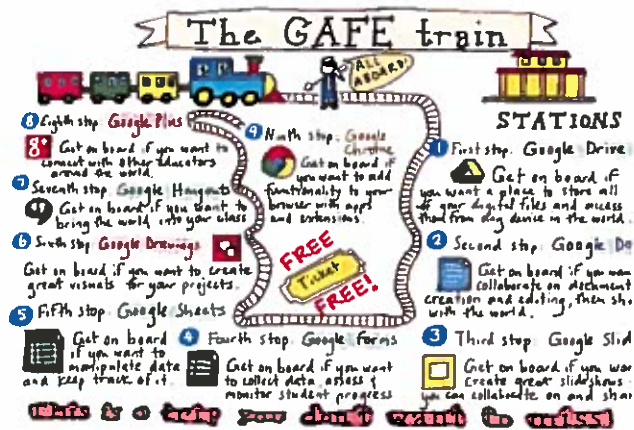 The GAFE train
ALL ABOARD!
STATIONS
1 First stop. Google Drive
Get on board if
you want a place to store all
of your digital files and access
them from any device in the world.
2 Second stop Google Do
Get on board if you wan
collaborate on document
creation and editing, then sh
with the world.
3 Third stop Google Slid
Get on board if you wan
create great slideshows
you can collaborate on and shar
4 Fourth stop. Google Forms
Get on board if you want
to collect data, assess &
monitor student progress
5 Fifth stop. Google Sheets
Get on board
if you want to
manipulate data
and keep track of it.
6 Sixth stop Google Drawings
Get on board if you want to create
great visuals for your projects.
7 Seventh stop Google Hangouts
Get on board if you want to
bring the world into your class
8 Eighth stop. Google Plus
8+
Get on board if you want to
connect with other educators
around the world.
9 Ninth stop. Google
Chrome
Get on board if
you want to add
functionality to your
browser with apps
and extensions.
FREE
Ticket
FREE!